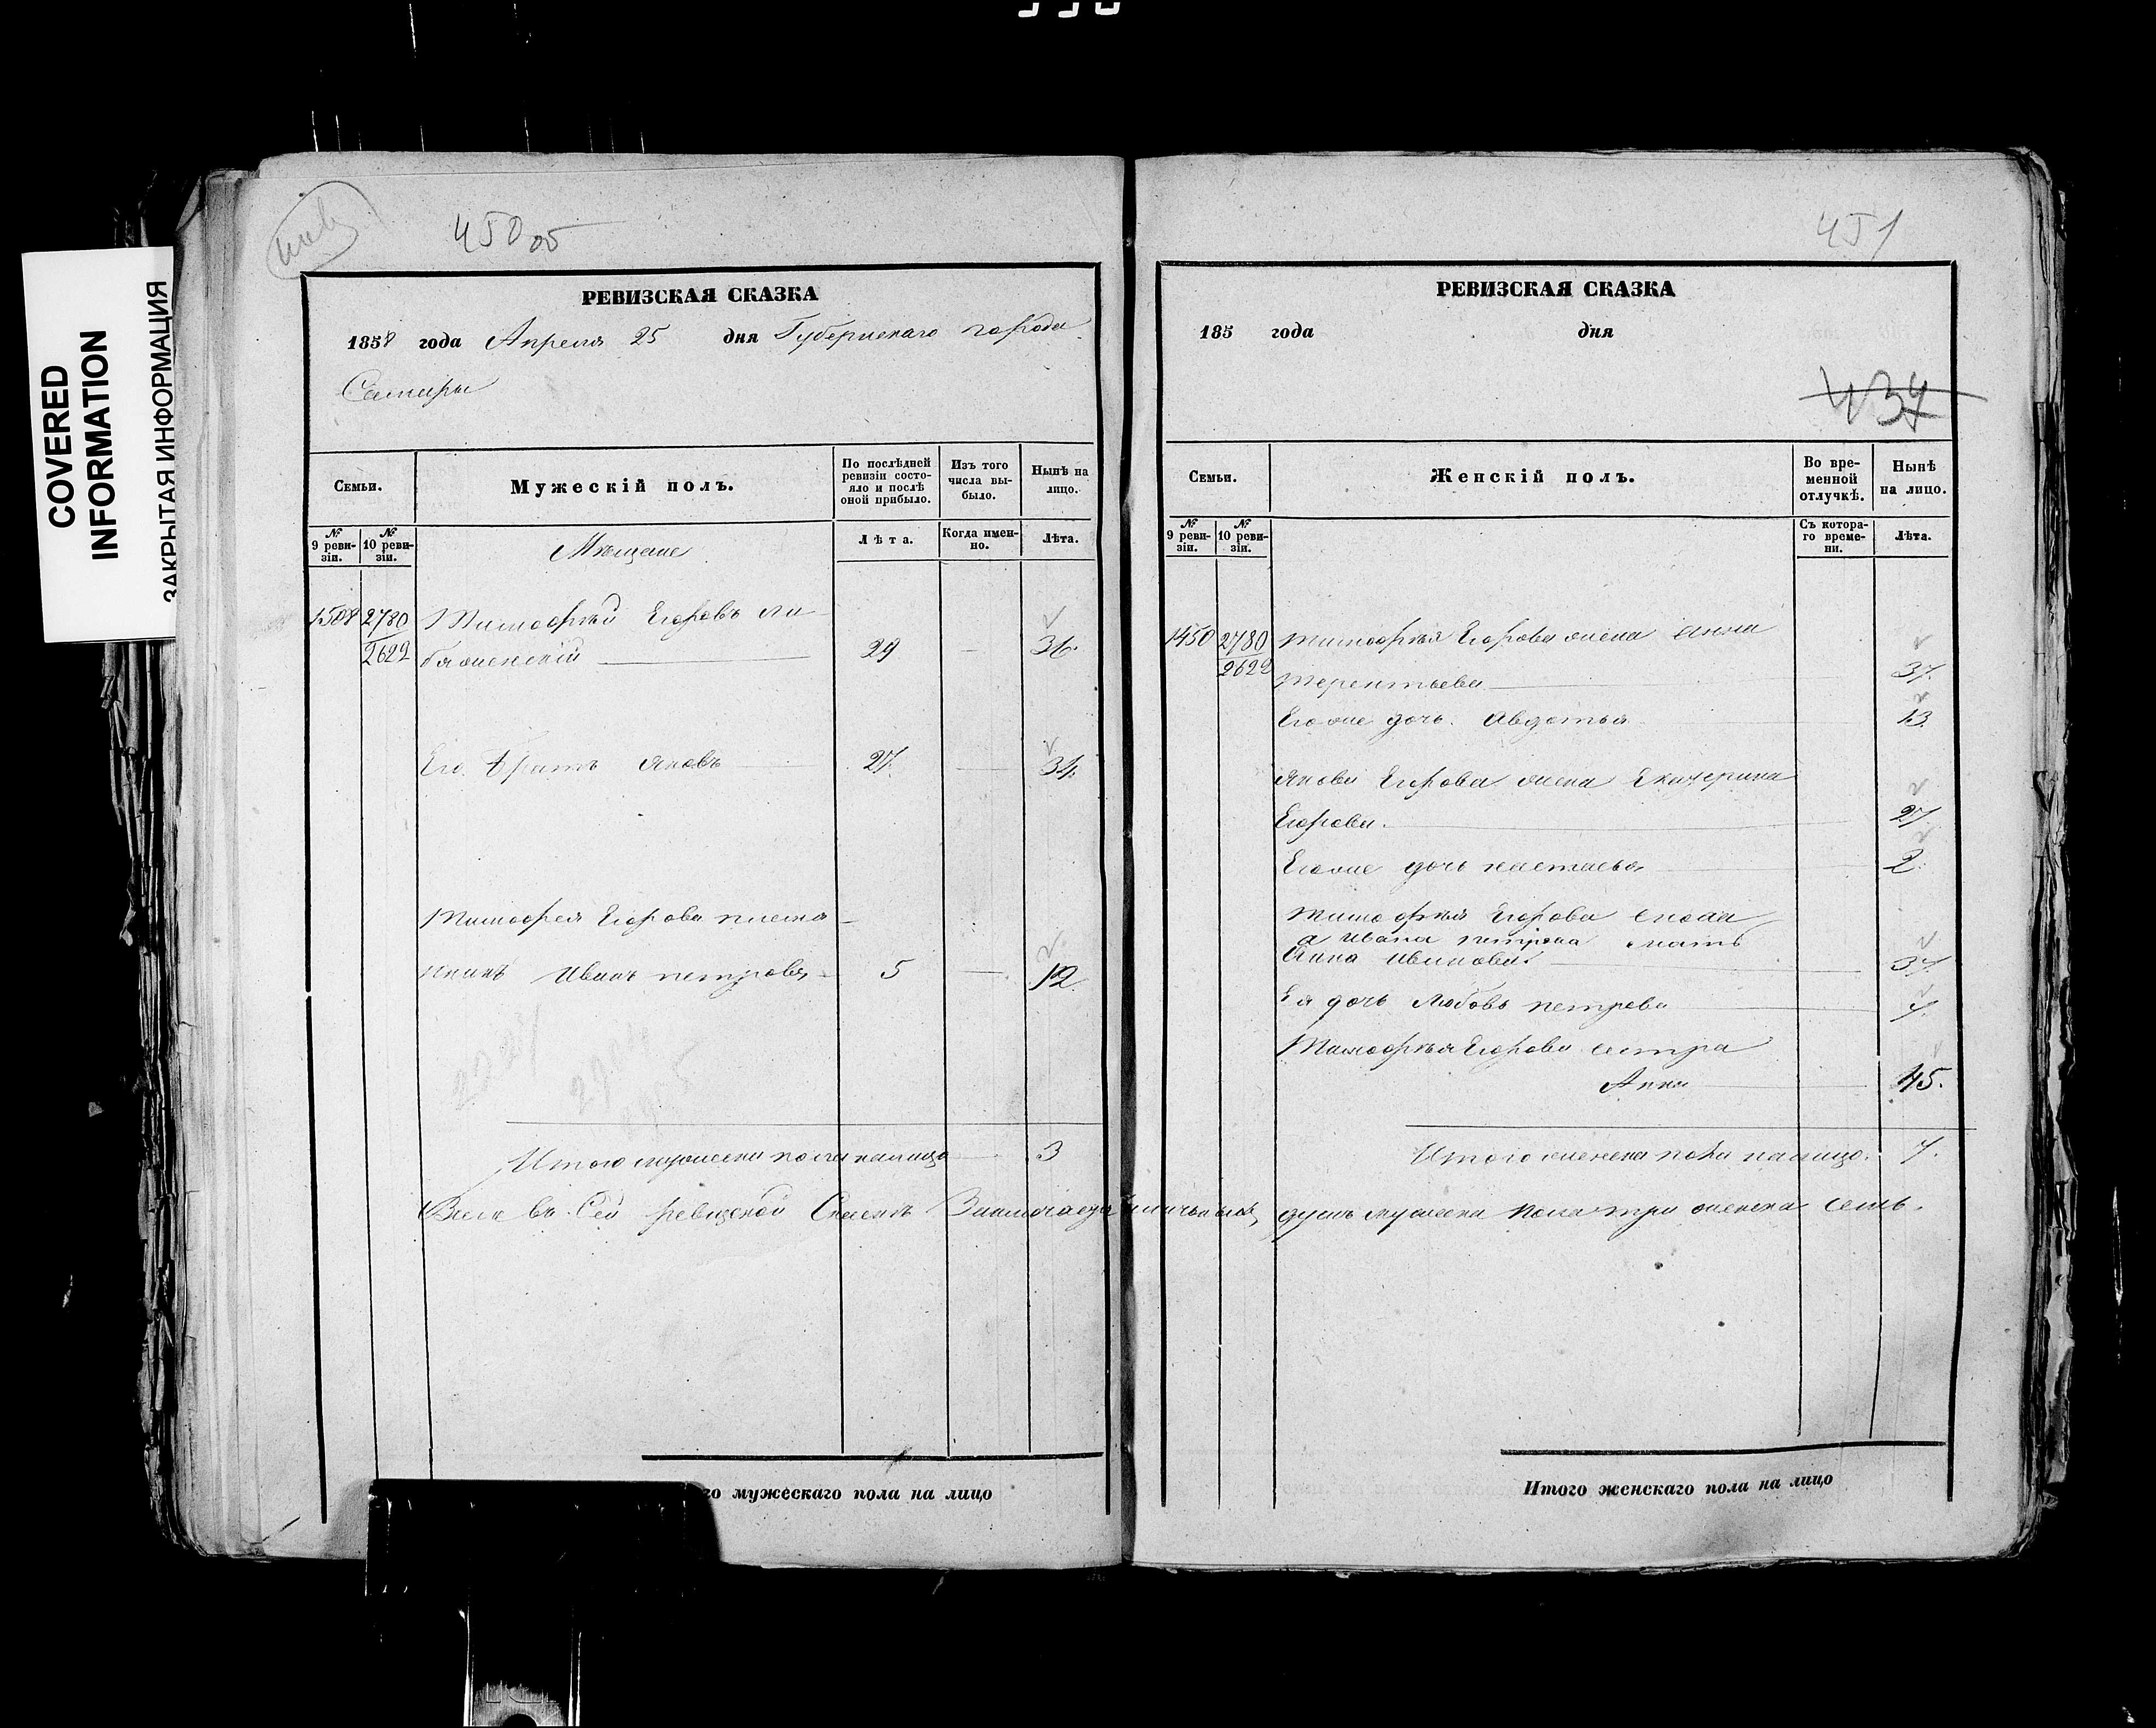 COVERED
INFORMATION
ЗАКРЫТАЯ ИНФОРМАЦИЯ
450 об
РЕВИЗСКАЯ СКАЗКА
1858 года Апреля 25 дня Губернскаго города
Самары
Семьи.
Мужескій полъ.
По послѣдней ревизіи состояло и послѣ оной прибыло.
Изъ того числа выбыло.
Нынѣ на лицо.
№ 9 ревизіи.
№ 10 ревизіи.
Мещане
Лѣта.
Когда именно.
Лѣта.
1508 2780 Тимофѣй Егоровъ
2622 29 — 36.
Его братъ Яковъ 27. — 34.
Тимофея Егорова племя-
никъ Иванъ петровъ 5 — 12
Итого мужеска пола налицо 3
Всего въ Сей ревизской Сказкѣ Значится наличныхъ
го мужескаго пола на лицо
451
РЕВИЗСКАЯ СКАЗКА
185 года дня
437
Семьи.
Женскій полъ.
Во временной отлучкѣ.
Нынѣ на лицо.
№ 9 ревизіи.
№ 10 ревизіи.
Съ котораго времени.
Лѣта.
1450 2780 Тимофѣя Егорова жена Анна
2622 терентьева 37.
Егоже дочь Авдотья 13
Якова Егорова жена Екатерина
Егорова. 27
Егоже дочь настасья 2.
Тимофѣя Егорова сноха
а Ивана петрова мать
Анна Иванова 37
Ея дочь Любовь петрова 7
Тимофѣя Егорова сестра
Анна 45.
Итого женска пола налицо. 7.
душъ мужеска пола три женска семь.
Итого женскаго пола на лицо